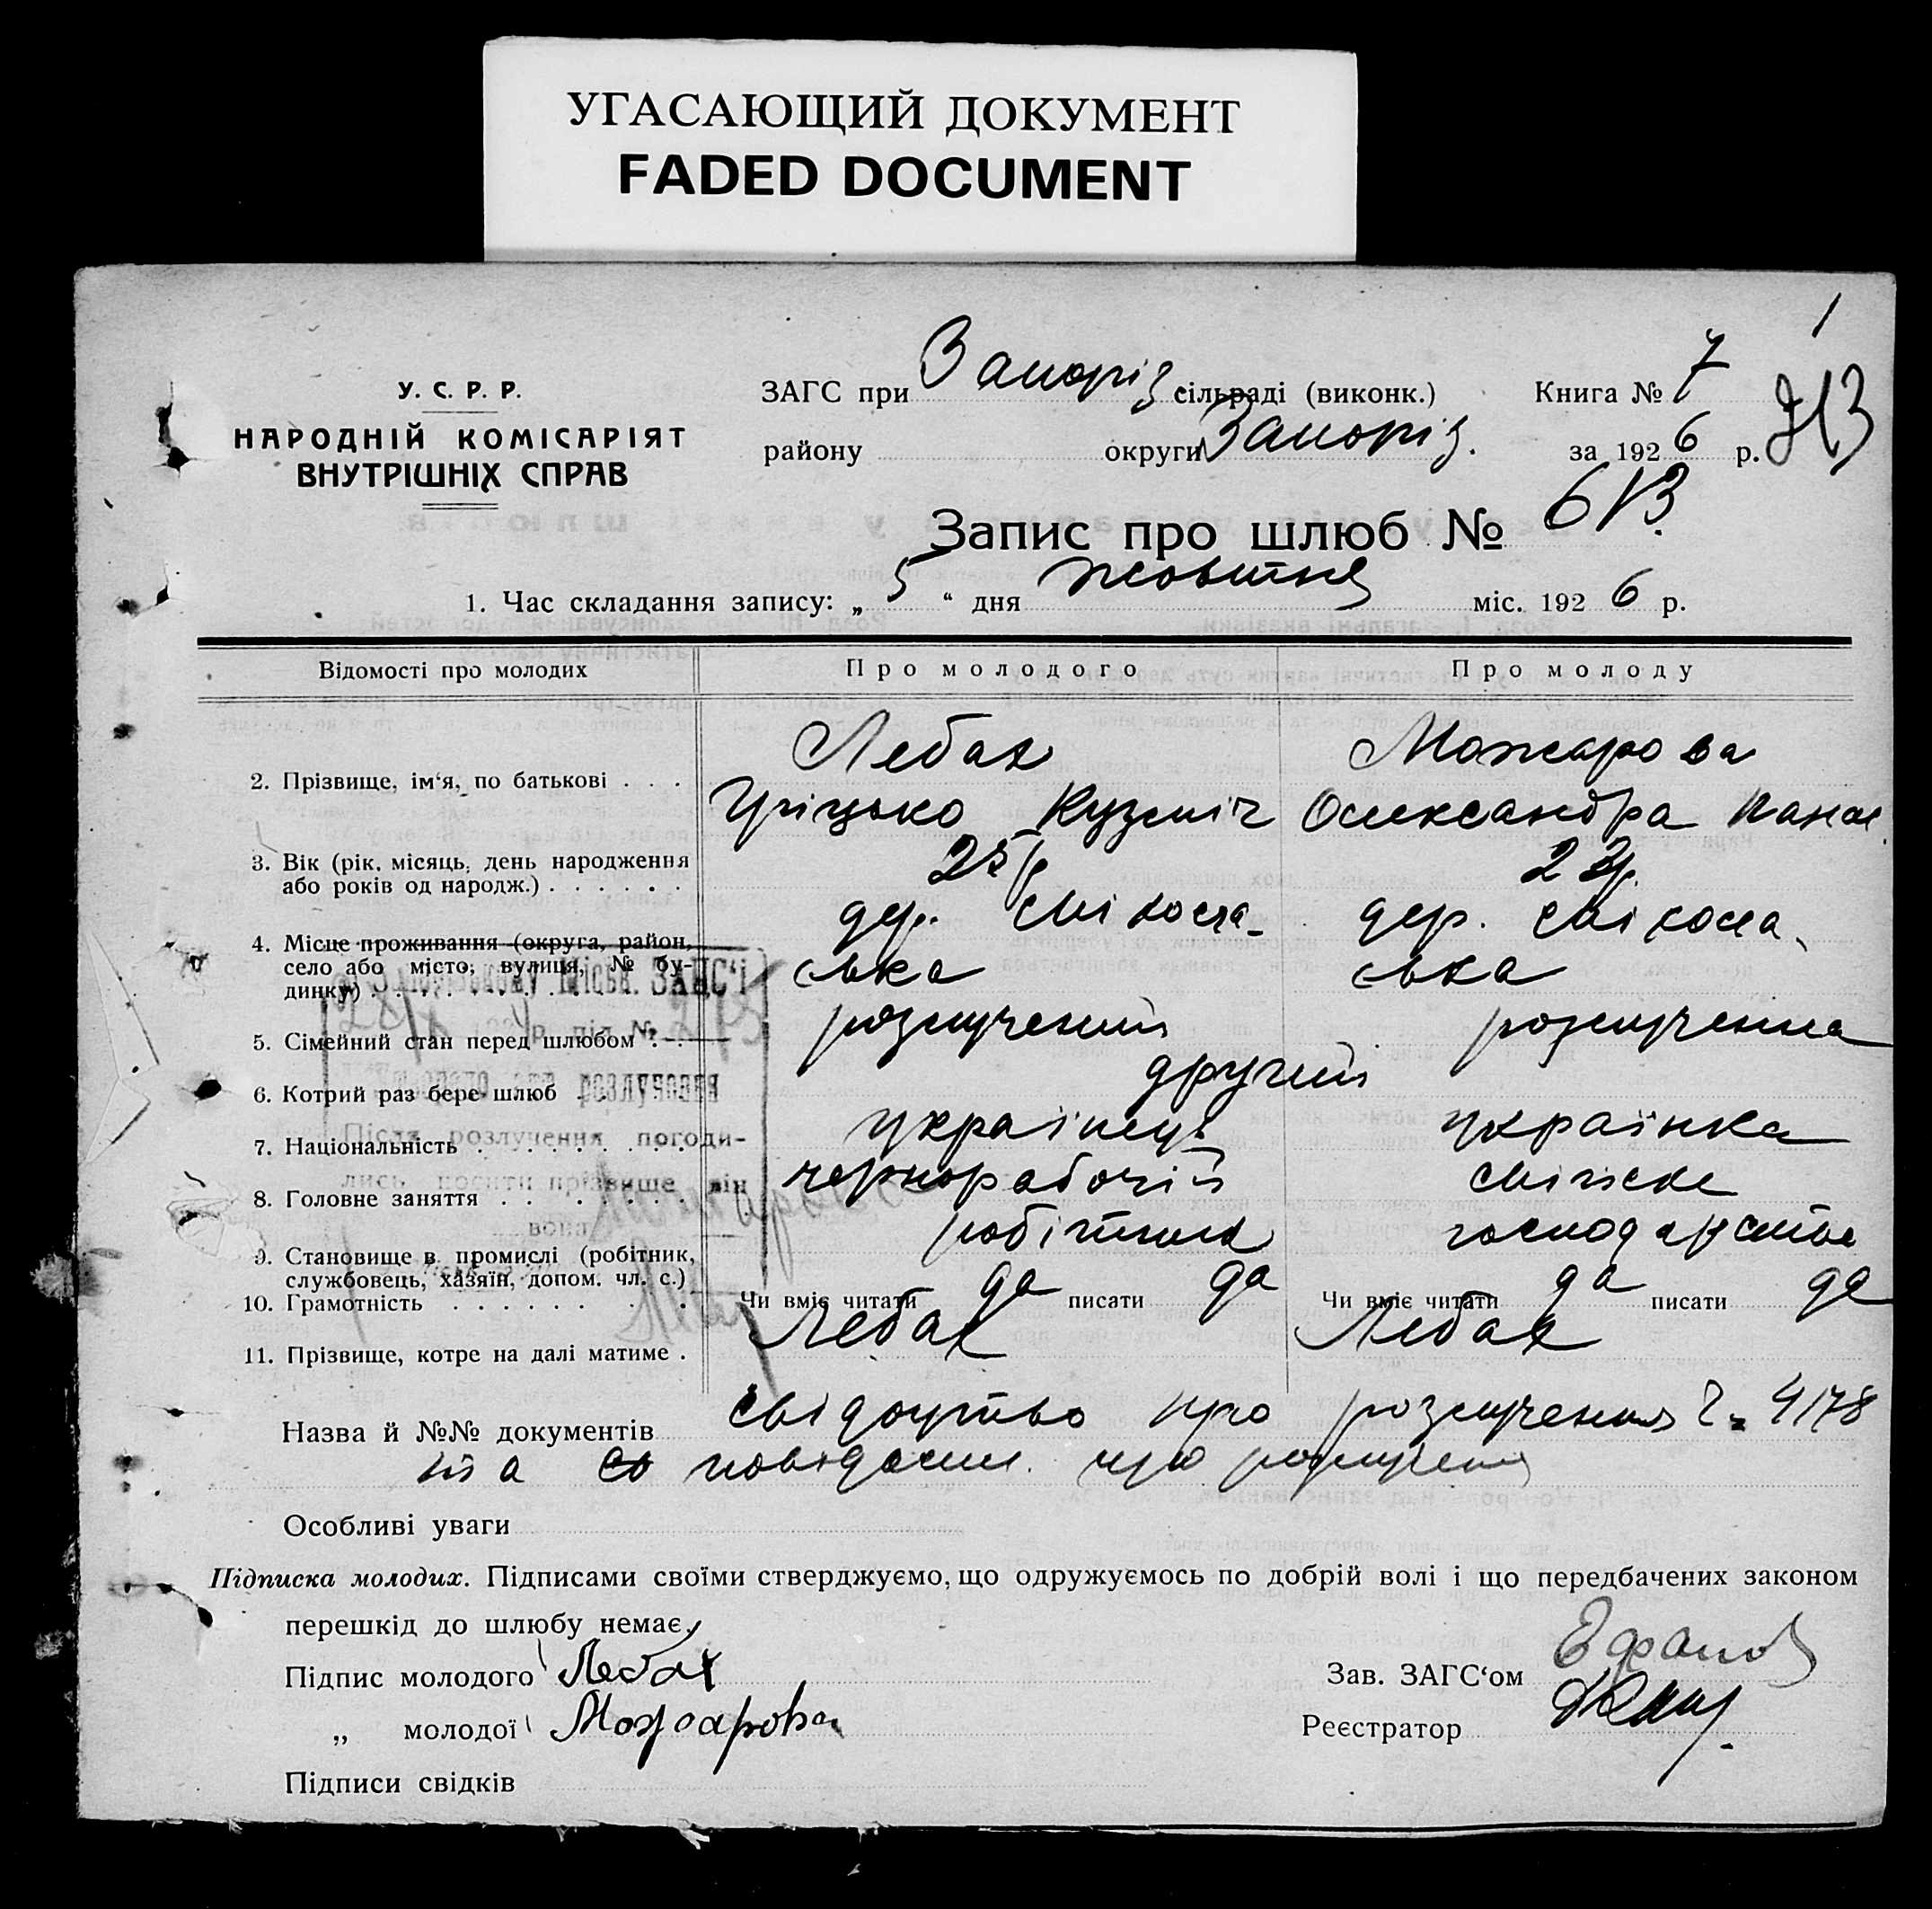 УГАСАЮЩИЙ ДОКУМЕНТ
FADED DOCUMENT
У. С. Р. Р.
НАРОДНІЙ КОМІСАРІЯТ
ВНУТРІШНІХ СПРАВ
ЗАГС при Запоріз. сільраді (виконк.) Книга № 7
району округи Запоріз. за 1926 р.
Запис про шлюб № 613
1. Час складання запису: „ 5 “ дня жовтня міс. 1926 р.
Відомості про молодих Про молодого Про молоду
2. Прізвище, ім‘я, по батькові . . . Лебах Можарова
Гріцько Кузміч Олександра Панас.
3. Вік (рік, місяць, день народження 25 р 22 р.
або років од народж.) . . . . . .
4. Місце проживання (округа, район, дер.
село або місто, вулиця, № бу- ська ська
динку) Міськ. ЗАГС‘і
5. Сімейний стан перед шлюбом розлучений розлученна
6. Котрий раз бере шлюб другий
розлучення
7. Національність українець українка
Після розлучення погоди-
лись носити прізвище він
8. Головне заняття чернорабочій сільске
вона
9. Становище в промислі (робітник, робітник господарство
службовець, хазяїн, допом. чл. с.)
10. Грамотність Чи вміє читати да писати да Чи вміє читати да писати де
11. Прізвище, котре на далі матиме . Лебах Лебах
Назва й №№ документів свідоцтво про розлучення 4178
та повідомл. про розлучення
Особливі уваги
Підписка молодих. Підписами своїми стверджуємо, що одружуємось по добрій волі і що передбачених законом
перешкід до шлюбу немає.
Підпис молодого Лебах Зав. ЗАГС‘ом
„ молодої Можарова Реєстратор
Підписи свідків